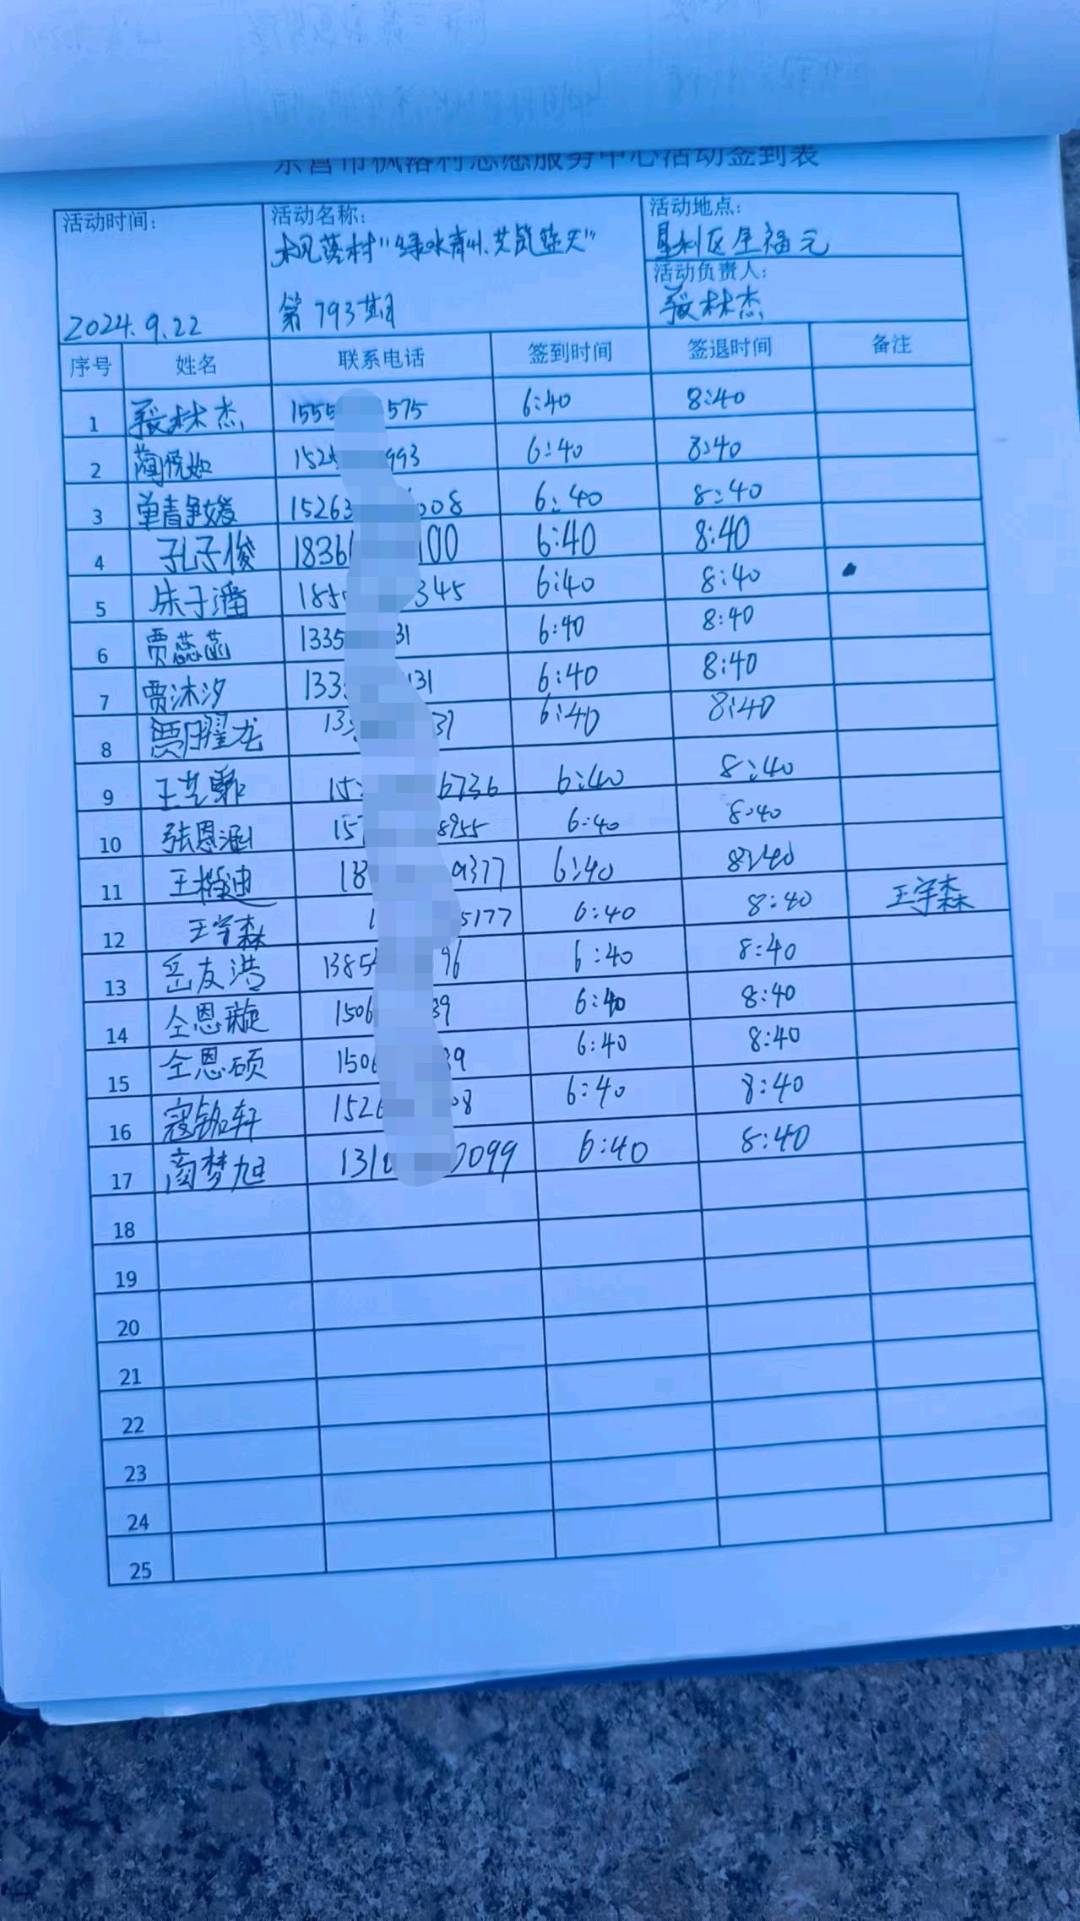 东营市枫落村志愿服务中心活动签到表
活动时间: 活动名称: 活动地点:
枫落村"绿水青山,共筑蓝天" 垦利区全福元
活动负责人:
2024.9.22 第793期 张林杰
序号 姓名 联系电话 签到时间 签退时间 备注
1 张林杰 1555 575 6:40 8:40
2 蔺悦如 152 993 6:40 8:40
3 单青 15263 008 6:40 8:40
4 孔子俊 1836 100 6:40 8:40
5 朱子潘 185 345 6:40 8:40
6 贾蕊菡 1335 31 6:40 8:40
7 贾沐汐 133 131 6:40 8:40
8 贾曜龙 13 31 6:40 8:40
9 王艺霏 15 6736 6:40 8:40
10 张恩涵 15 8955 6:40 8:40
11 王 迪 18 9377 6:40 8:40
12 王宇森 1 5177 6:40 8:40 王宇森
13 岳友浩 1385 96 6:40 8:40
14 仝恩璇 1506 39 6:40 8:40
15 仝恩硕 1506 39 6:40 8:40
16 寇铭轩 1526 08 6:40 8:40
17 商梦旭 131 099 6:40 8:40
18
19
20
21
22
23
24
25